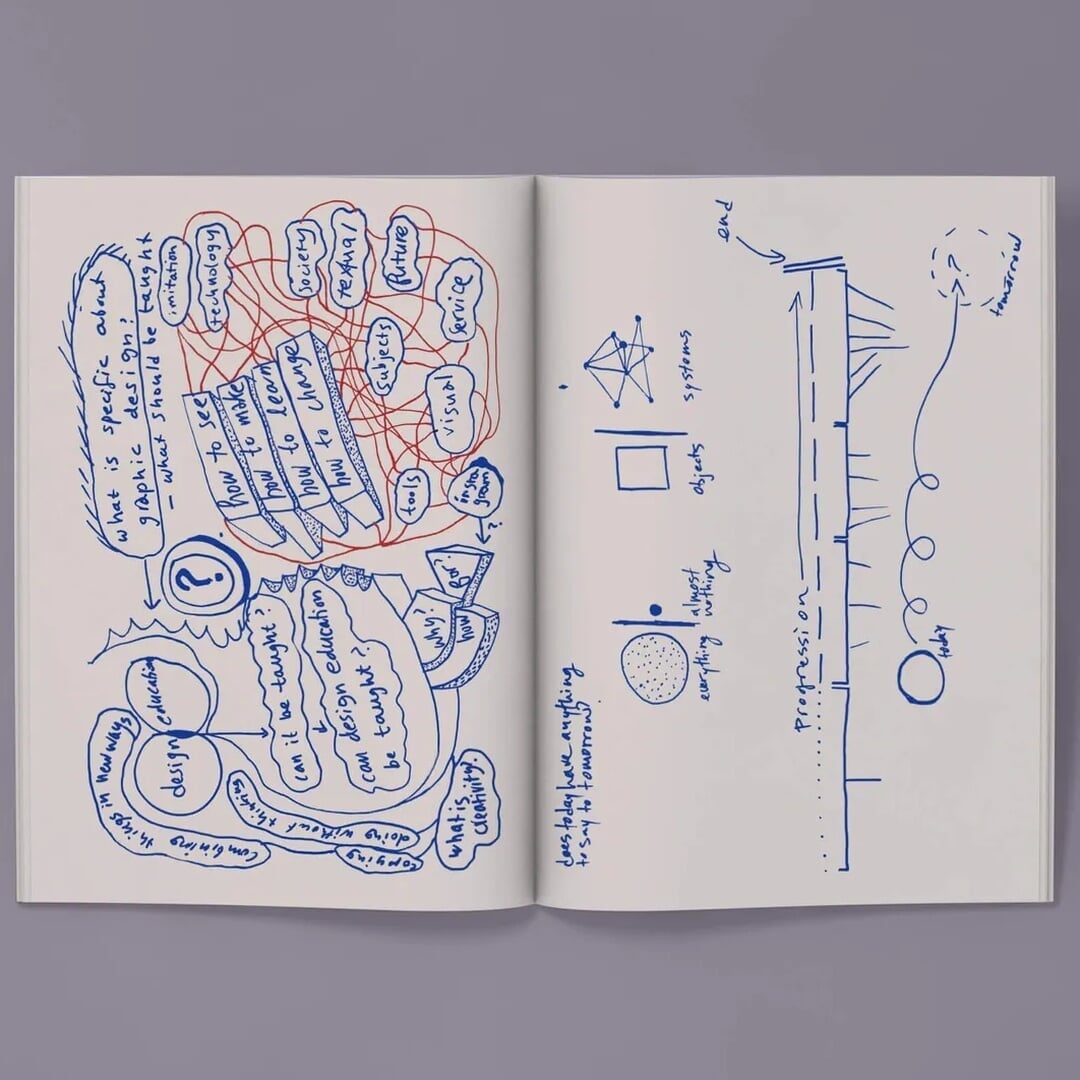 what is specific about
graphic design?
– what should be taught
imitation
technology
society
textual
future
service
subjects
visual
tools
insta
gram
?
how to see
how to make
how to learn
how to change
?
education
design
can it be taught?
can design education
be taught?
why?
how
for?
combining things in new ways
doing without thinking
copying
what is
creativity?
does today have anything
to say to tomorrow?
everything
almost
nothing
objects
systems
progression
end
today
?
tomorrow